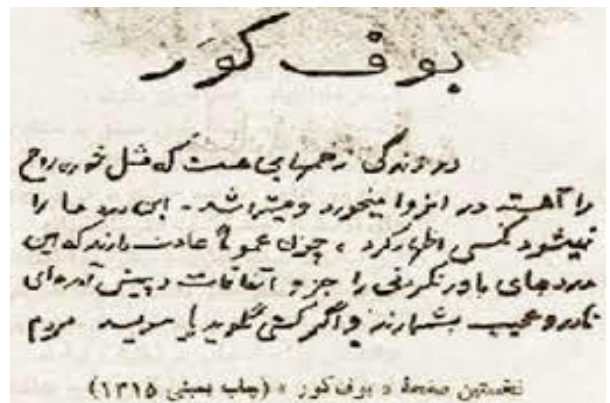 بوف کور
در زندگی زخمهایی هست که مثل خوره روح
را آهسته در انزوا میخورد و میتراشد - این درد ها را
نمیشود بکسی اظهار کرد ، چون عموماً عادت دارند که این
دردهای باور نکردنی را جزو اتفاقات و پیش آمدهای
نادر و عجیب بشمارند و اگر کسی بگوید یا بنویسد مردم
نخستین صفحهٔ « بوف کور » (چاپ بمبئی ۱۳۱۵)